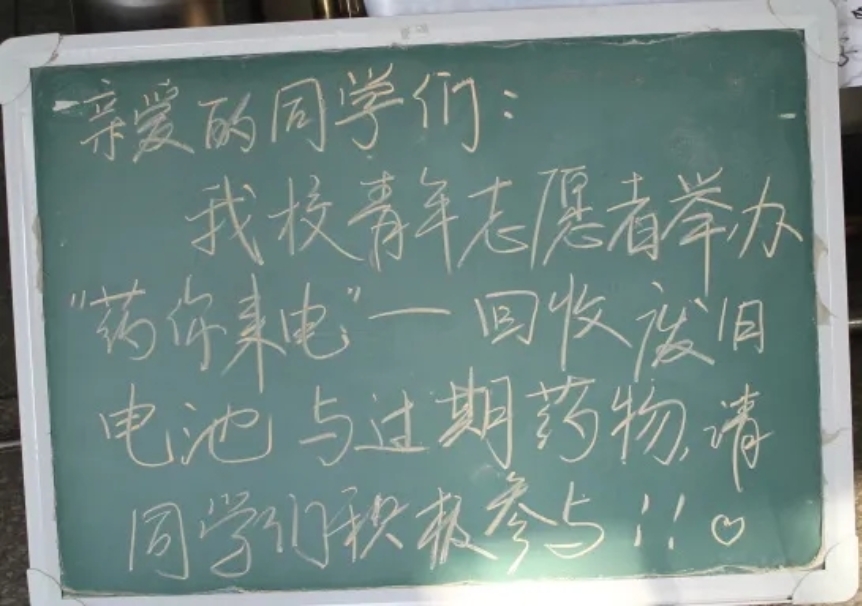 亲爱的同学们：
我校青年志愿者举办
“药你来电”—回收废旧
电池与过期药物,请
同学们积极参与!!♡